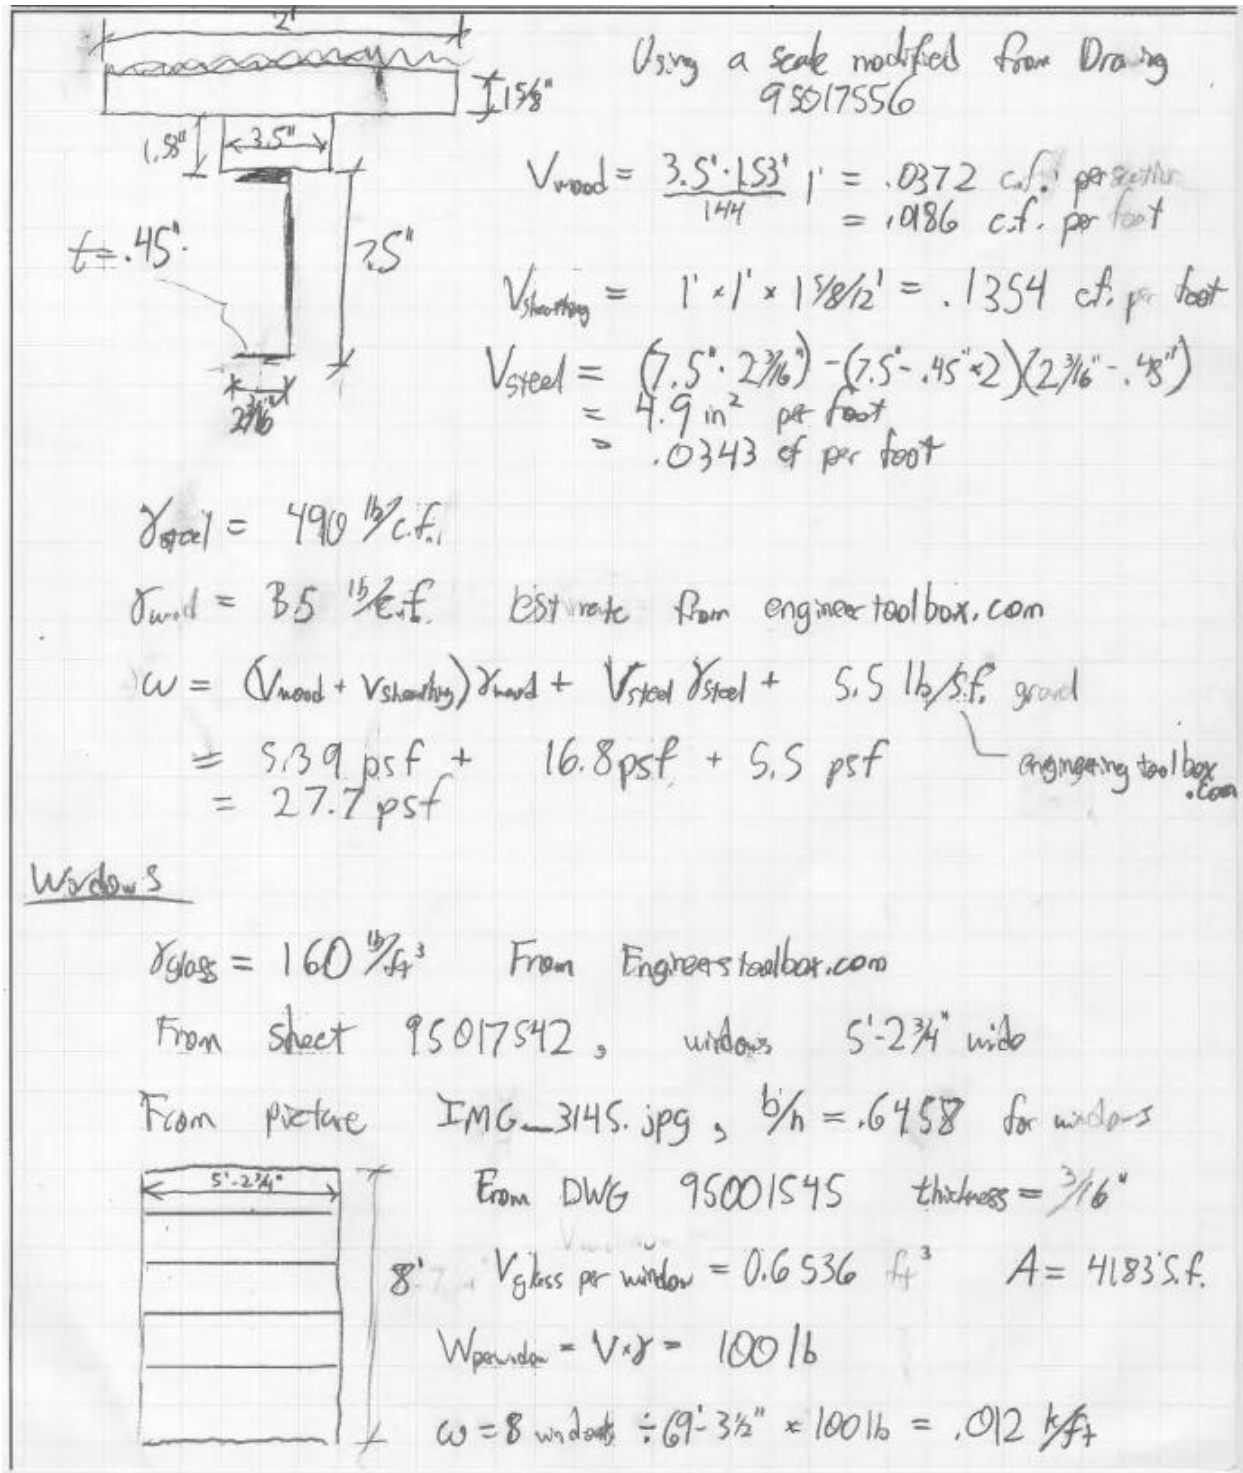 2'
Using a scale modified from Drawing
95017556
1 5/8"
1.53"
3.5"
V_wood = 3.5'·1.53'/144 1' = .0372 c.f. per section
= .0186 c.f. per foot
t = .45"
7.5"
V_sheathing = 1' × 1' × 1 5/8/12' = .1354 cf. per foot
V_steel = (7.5"·2 3/16") - (7.5" - .45"×2)(2 3/16" - .45")
= 4.9 in² per foot
= .0343 cf per foot
2 3/16"
γ_steel = 490 lb/c.f.
γ_wood = 35 lb/c.f. Estimate from engineertoolbox.com
ω = (V_wood + V_sheathing) γ_wood + V_steel γ_steel + 5.5 lb/s.f. gravel
= 5.39 psf + 16.8 psf + 5.5 psf
engineering toolbox
.com
= 27.7 psf
Windows
γ_glass = 160 lb/ft³ From Engineerstoolbox.com
From sheet 95017542, windows 5'-2 3/4" wide
From picture IMG_3145.jpg, b/h = .6458 for windows
5'-2 3/4"
From DWG 95001545 thickness = 3/16"
8'
V_glass per window = 0.6536 ft³ A = 41.83 s.f.
W_per window = V×γ = 100 lb
ω = 8 windows ÷ 69'-3 1/2" × 100 lb = .012 k/ft